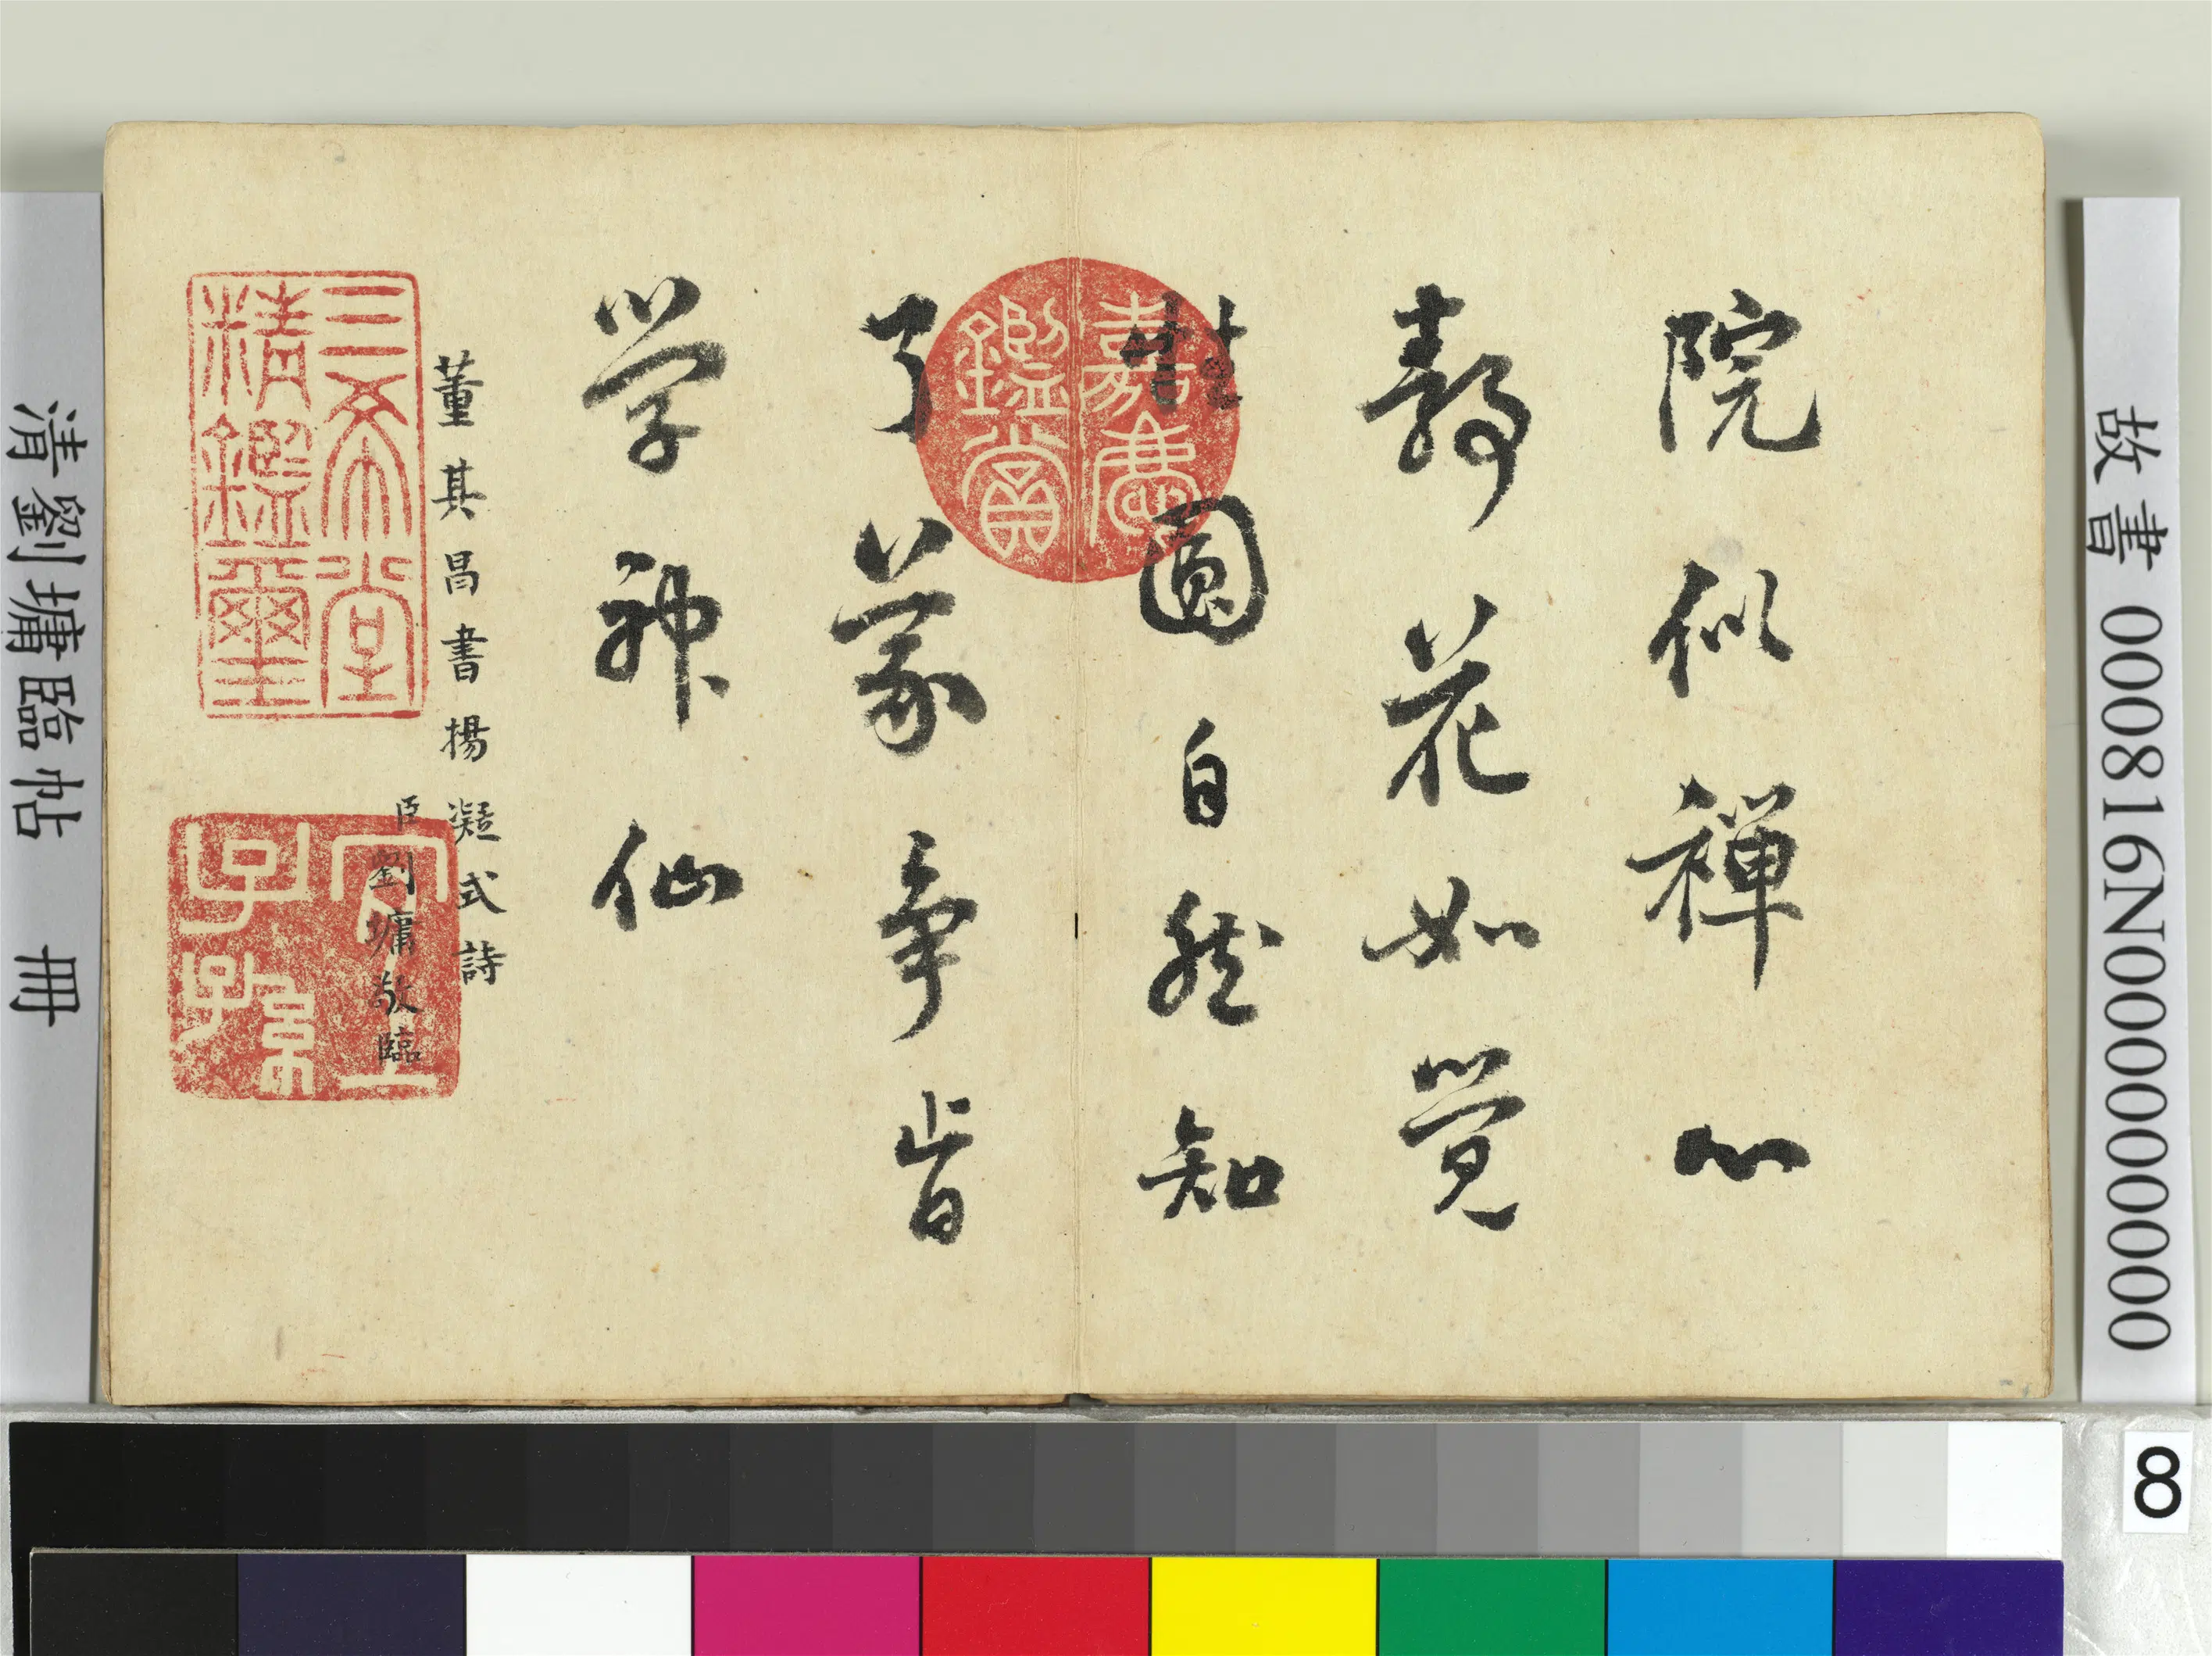 故書 000816N000000000
院似禪心
靜花如覺
性圓自然知
了義爭肯
學神仙
董其昌書楊凝式詩
臣劉墉敬臨
嘉慶鑑賞
三希堂精鑑璽
宜子孫
清劉墉臨帖 冊
8